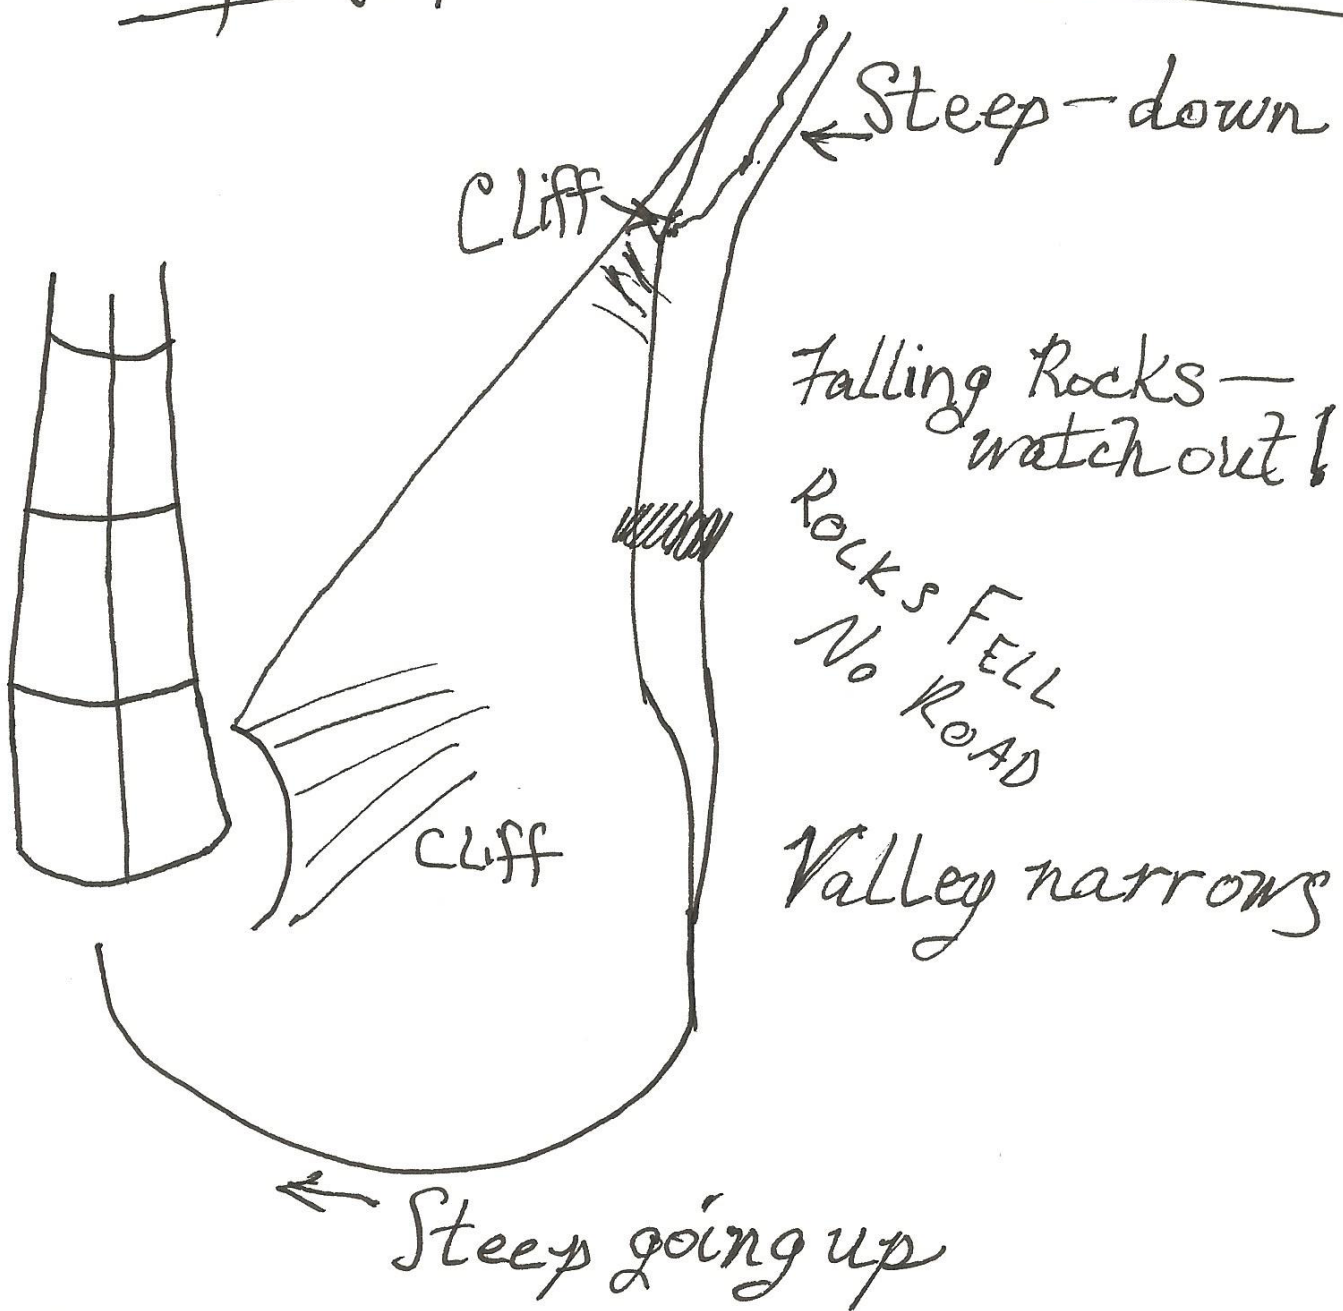 Steep-down
Cliff
Falling Rocks—
watch out!
ROCKS FELL
No ROAD
Cliff
Valley narrows
Steep going up